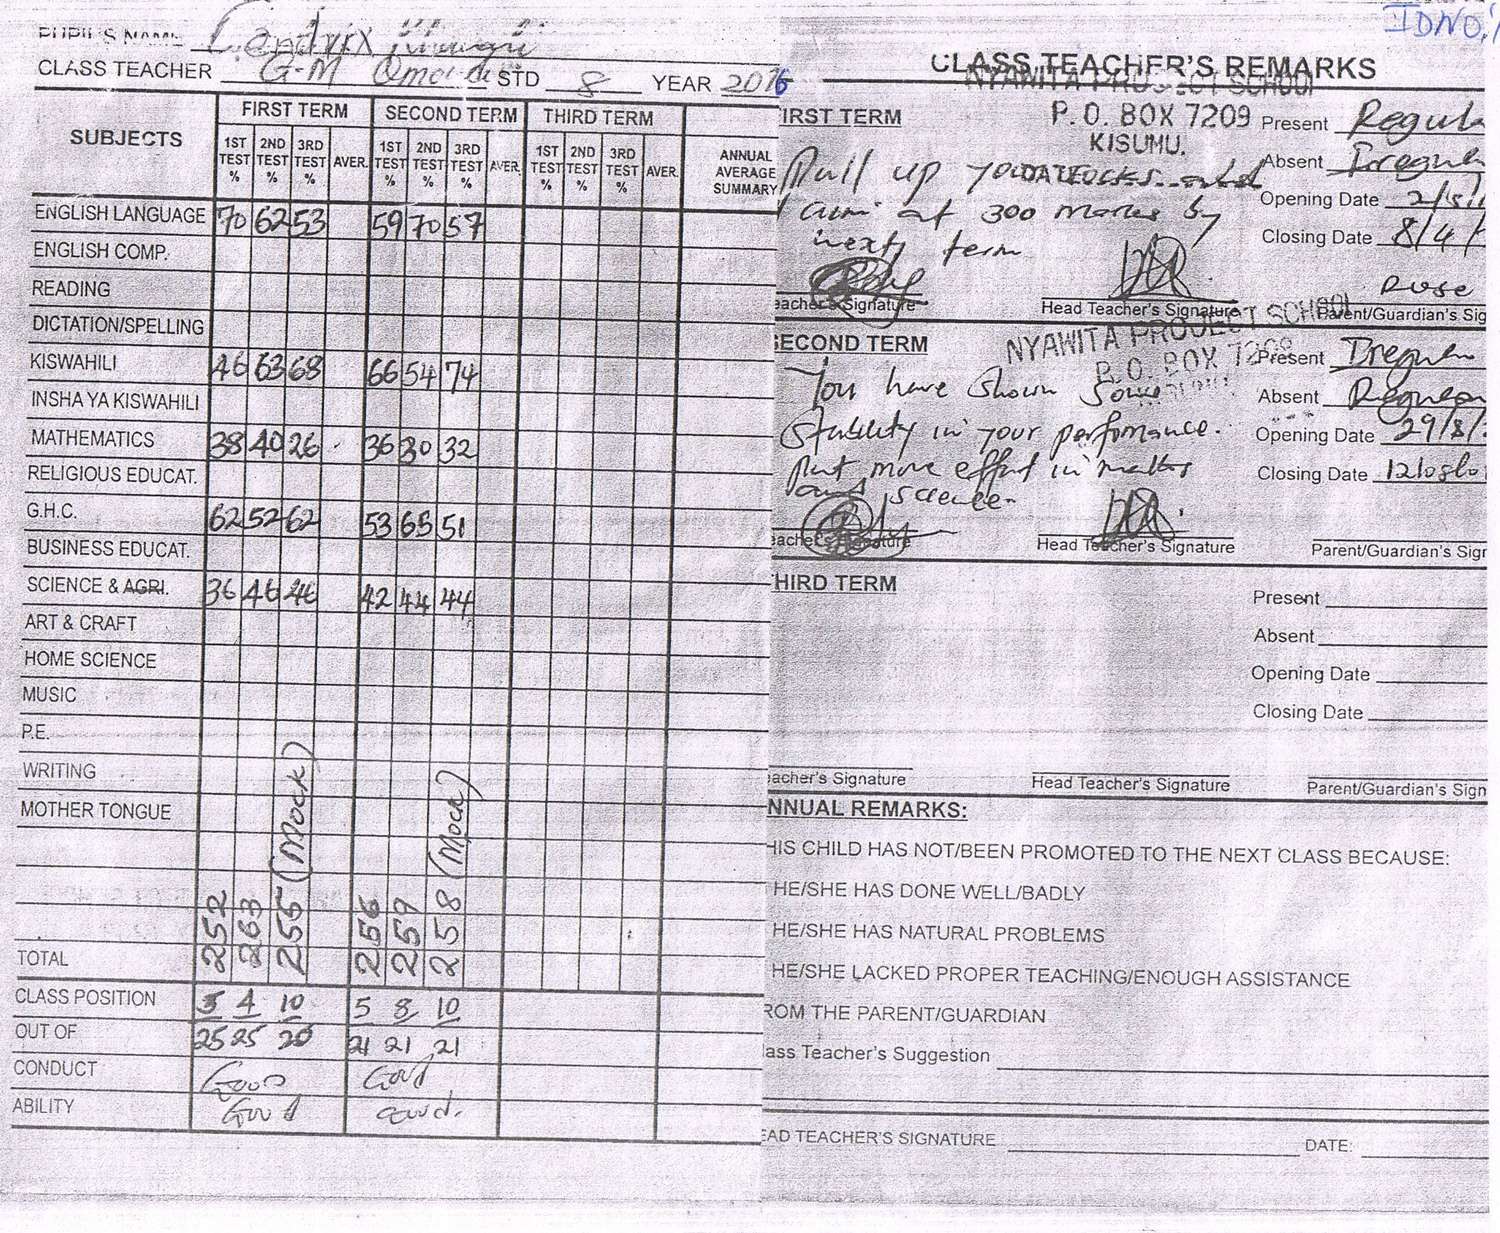 IDNO:
PUPIL'S NAME
CLASS TEACHER G-M STD 8 YEAR 2016
SUBJECTS FIRST TERM SECOND TERM THIRD TERM ANNUAL AVERAGE SUMMARY
1ST TEST % 2ND TEST % 3RD TEST % AVER. 1ST TEST % 2ND TEST % 3RD TEST % AVER. 1ST TEST % 2ND TEST % 3RD TEST % AVER.
ENGLISH LANGUAGE 70 62 53 59 70 57
ENGLISH COMP.
READING
DICTATION/SPELLING
KISWAHILI 46 63 68 66 54 74
INSHA YA KISWAHILI
MATHEMATICS 38 40 26 36 30 32
RELIGIOUS EDUCAT.
G.H.C. 62 52 62 53 65 51
BUSINESS EDUCAT.
SCIENCE & AGRI. 36 46 46 42 44 44
ART & CRAFT
HOME SCIENCE
MUSIC
P.E.
WRITING
MOTHER TONGUE
TOTAL 252 263 255 (Mock) 256 259 258 (Mock)
CLASS POSITION 5 4 10 5 8 10
OUT OF 25 25 20 21 21 21
CONDUCT Good Good
ABILITY Good Good.
CLASS TEACHER'S REMARKS
NYAWITA PROJECT SCHOOL
P.O. BOX 7209
KISUMU.
DATE
IRST TERM
Pull up your socks and
aim at 300 marks by
next term
Present Regul
Absent Irregul
Opening Date
Closing Date 8/4/
Rose
eacher's Signature Head Teacher's Signature Parent/Guardian's Sig
NYAWITA PROJECT SCHOOL
P.O. BOX 7209
ECOND TERM
You have shown some
stability in your performance.
Put more effort in maths
and science.
Present Irregular
Absent Regular
Opening Date 29/8/
Closing Date
eacher's Signature Head Teacher's Signature Parent/Guardian's Sign
HIRD TERM
Present
Absent
Opening Date
Closing Date
acher's Signature Head Teacher's Signature Parent/Guardian's Sign
NNUAL REMARKS:
HIS CHILD HAS NOT/BEEN PROMOTED TO THE NEXT CLASS BECAUSE:
HE/SHE HAS DONE WELL/BADLY
HE/SHE HAS NATURAL PROBLEMS
HE/SHE LACKED PROPER TEACHING/ENOUGH ASSISTANCE
ROM THE PARENT/GUARDIAN
ass Teacher's Suggestion
EAD TEACHER'S SIGNATURE DATE: